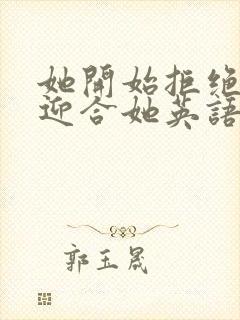 她開始拒絕
迎合她英語
郭玉晟